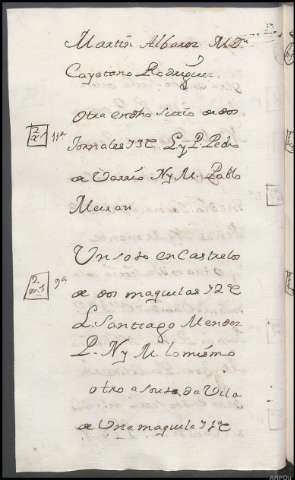 Martin Albarez M D.
Cayetano Rodriguez
Otra en dho sitio de dos
2 11ª Jornales y 3ª L y P. Pedro
de Varrio N y M. Pablo
Meiran
Un soto en Castrelo
2 9ª de dos maquilas y 2ª
L. Santiago Mendez
P. N y M. lo mismo
otro a souto da Vila
de Una maquila y 1ª